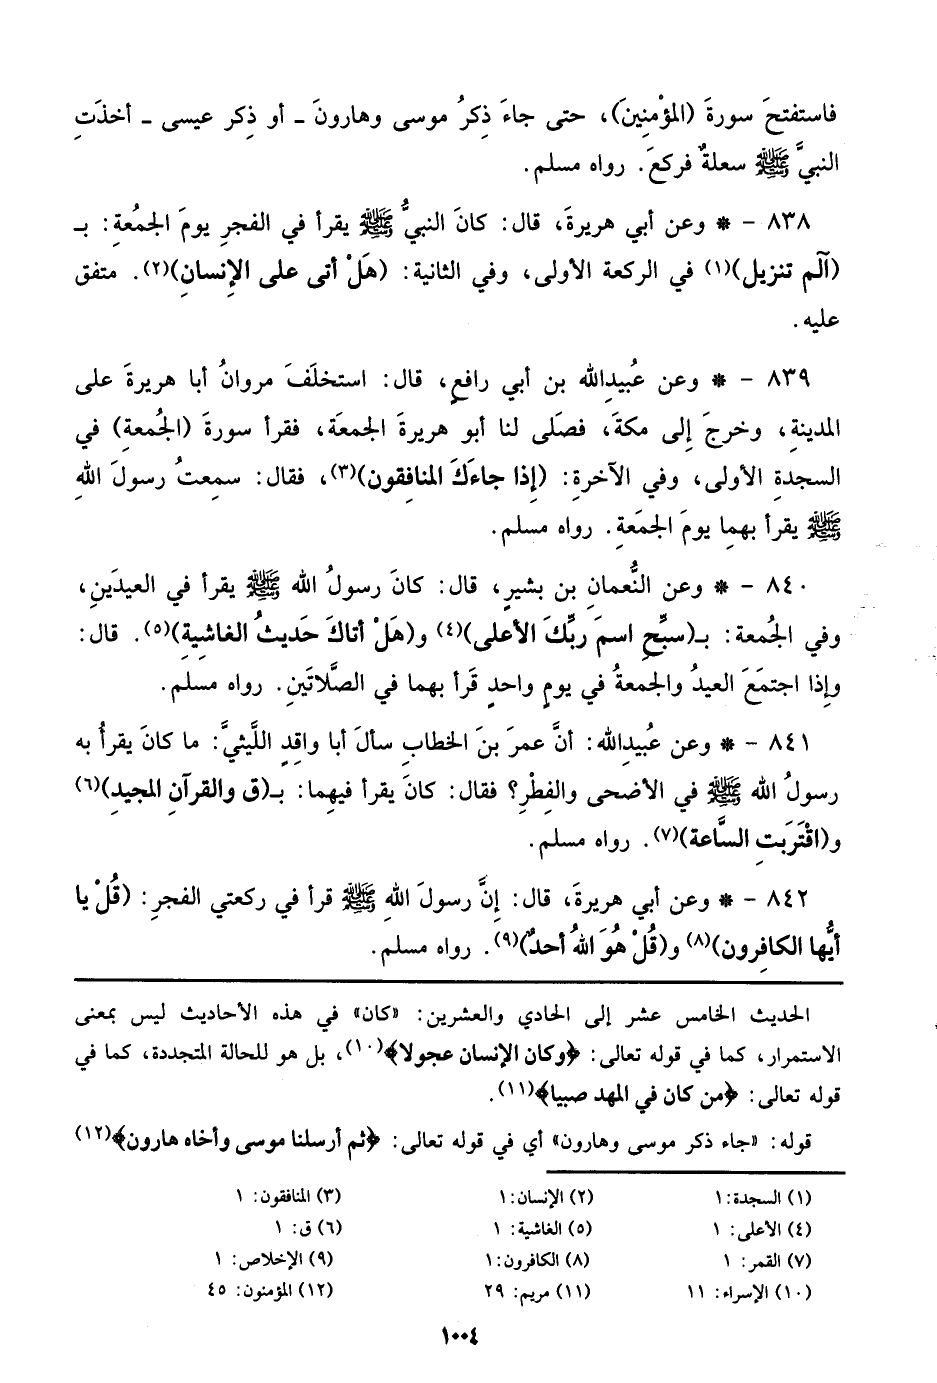 فاستفتحَ سورةَ (المؤْمنِينَ)، حتى جاءَ ذِكرُ موسى وهارونَ ـ أو ذِكر عيسى ـ أخذَتِ
النبيَّ ﷺ سعلةٌ فركعَ. رواه مسلم.
٨٣٨ – * وعن أبي هريرةَ، قال: كانَ النبيُّ ﷺ يقرأ في الفجرِ يومَ الجمُعةِ: بـ
(آلم تنزيل)(١) في الركعة الأولى، وفي الثانية: (هَلْ أتى على الإنسانِ)(٢). متفق
عليه.
٨٣٩ – * وعن عُبيدِالله بن أبي رافعٍ، قال: استخلَفَ مروانُ أبا هريرةَ على
المدينةِ، وخرجَ إلى مكةَ، فصَلى لنا أبو هريرةَ الجمعَة، فقرأ سورةَ (الجُمعةِ) في
السجدةِ الأولى، وفي الآخرةِ: (إذا جاءَكَ المنافِقون)(٣)، فقال: سمعتُ رسولَ اللهِ
ﷺ يقرأ بهما يومَ الجمَعةِ. رواه مسلم.
٨٤٠ – * وعن النُّعمانِ بن بشيرٍ، قال: كانَ رسولُ الله ﷺ يقرأ في العيدَينِ،
وفي الجُمعة: بـ(سبِّحِ اسمَ ربِّكَ الأعلى)(٤) و(هَلْ أتاكَ حَديثُ الغاشيةِ)(٥). قال:
وإذا اجتمَعَ العيدُ والجمعةُ في يومٍ واحدٍ قَرأ بهما في الصَّلاتَينِ. رواه مسلم.
٨٤١ – * وعن عُبيدِالله: أنَّ عمرَ بنَ الخطابِ سألَ أبا واقدٍ اللَّيثيَّ: ما كانَ يقرأُ به
رسولُ الله ﷺ في الأضحى والفِطْرِ؟ فقال: كانَ يقرأ فيهِما: بـ(ق والقرآنِ المجيدِ)(٦)
و(اقْتَرَبَتِ السَّاعة)(٧). رواه مسلم.
٨٤٢ – * وعن أبي هريرةَ، قال: إنَّ رسولَ اللهِ ﷺ قرأ في ركعتي الفجرِ: (قُلْ يا
أيُّها الكافِرون)(٨) و(قُلْ هُوَ اللهُ أحدٌ)(٩). رواه مسلم.
الحديث الخامس عشر إلى الحادي والعشرين: «كان» في هذه الأحاديث ليس بمعنى
الاستمرار، كما في قوله تعالى: ﴿وكان الإنسان عجولا﴾(١٠)، بل هو للحالة المتجددة، كما في
قوله تعالى: ﴿من كان في المهد صبيا﴾(١١).
قوله: «جاء ذكر موسى وهارون» أي في قوله تعالى: ﴿ثم أرسلنا موسى وأخاه هارون﴾(١٢)
(١) السجدة: ١ (٢) الإنسان: ١ (٣) المنافقون: ١
(٤) الأعلى: ١ (٥) الغاشية: ١ (٦) ق: ١
(٧) القمر: ١ (٨) الكافرون: ١ (٩) الإخلاص: ١
(١٠) الإسراء: ١١ (١١) مريم: ٢٩ (١٢) المؤمنون: ٤٥
١٠٠٤